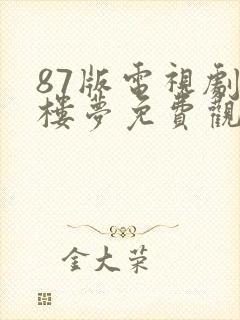 87版電視劇
樓夢免費觀
金大荣